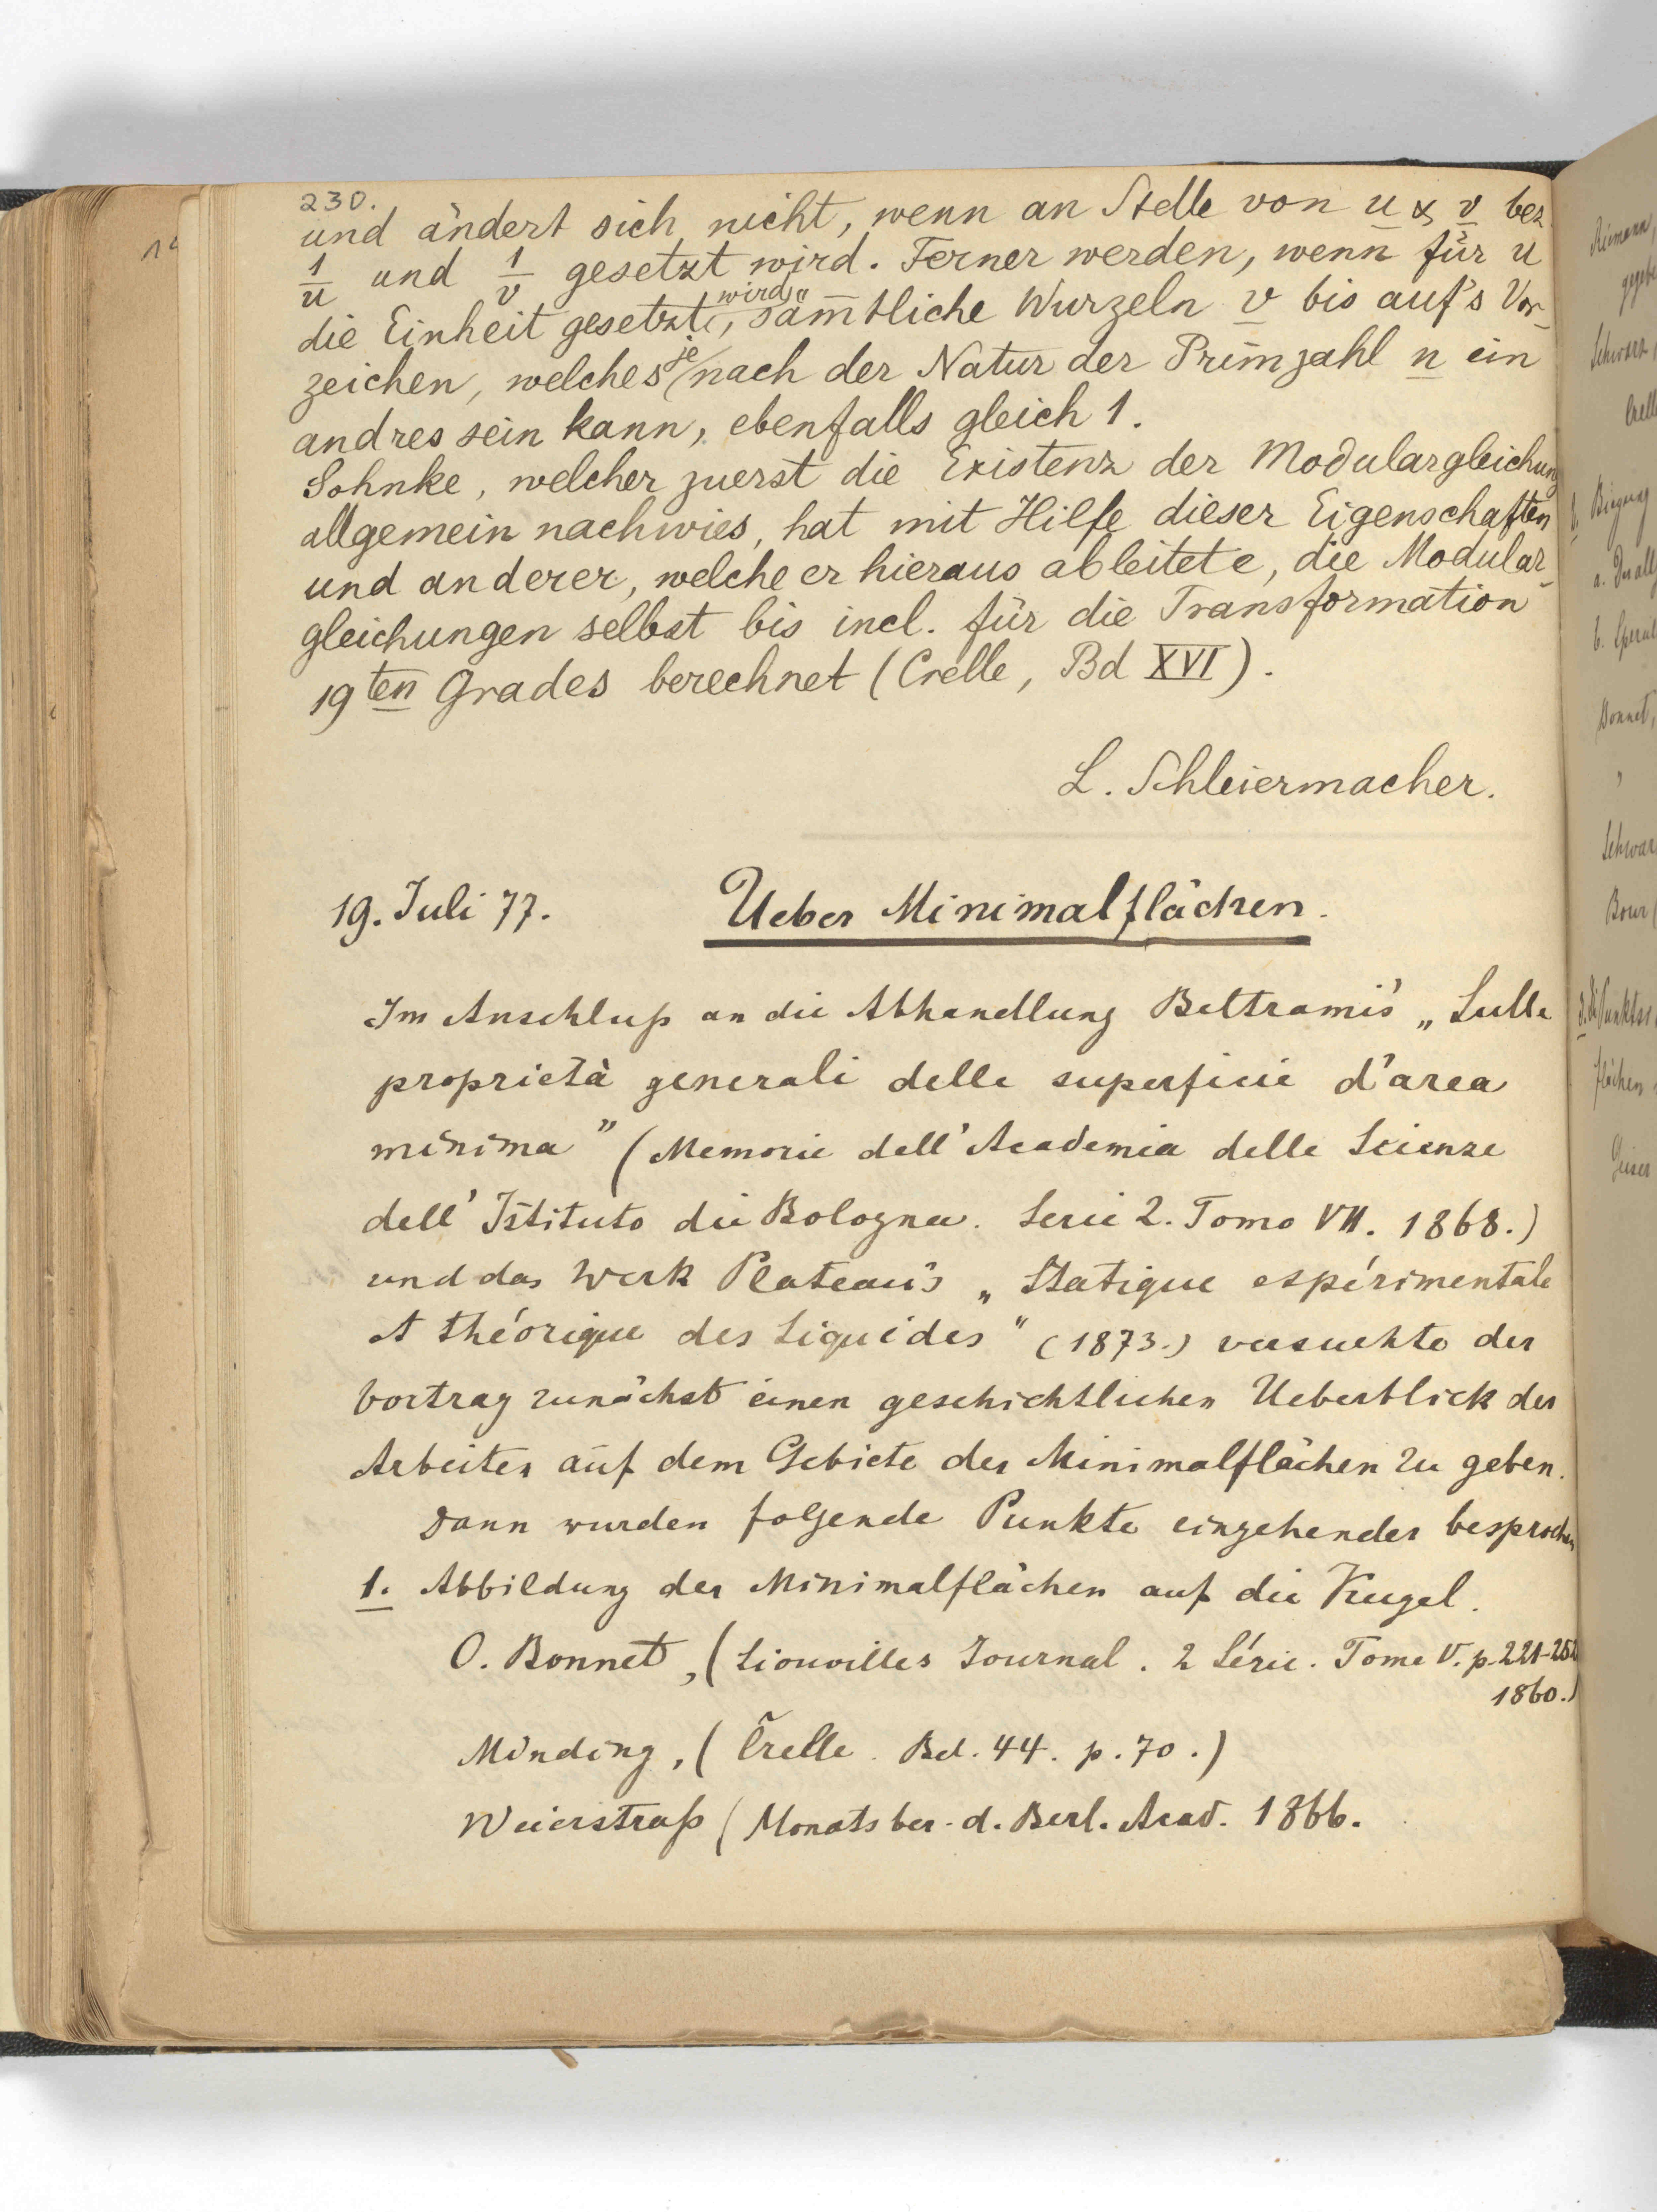 230.
und ändert sich nicht, wenn an Stelle von u & v bez
1/u und 1/v gesetzt wird. Ferner werden, wenn für u
die Einheit gesetzt wird, säm̄tliche Wurzeln v bis auf's Vor-
zeichen, welches je nach der Natur der Primzahl n ein
andres sein kann, ebenfalls gleich 1.
Sohnke, welcher zuerst die Existenz der Modulargleichung
allgemein nachwies, hat mit Hilfe dieser Eigenschaften
und anderer, welche er hieraus ableitete, die Modular-
gleichungen selbst bis incl. für die Transformation
19ten Grades berechnet (Crelle, Bd XVI).
L. Schleiermacher.
19. Juli 77. Ueber Minimalflächen.
Im Anschluß an die Abhandlung Beltrami's „Sulle
proprietà generali delle superficie d'area
minima" (Memorie dell' Academia delle Scienze
dell' Istituto di Bologna. Serie 2. Tomo VII. 1868.)
und das Werk Plateau's „Statique espérimentale
et théorique des Liquides" (1873.) versuchte der
Vortrag zunächst einen geschichtlichen Ueberblick der
Arbeiten auf dem Gebiete der Minimalflächen zu geben.
Dann wurden folgende Punkte eingehender besprochen
1. Abbildung der Minimalflächen auf die Kugel.
O. Bonnet, (Liouvilles Journal. 2 Série. Tome V. p. 221-252
1860.)
Minding, (Crelle. Bd. 44. p. 70.)
Weierstraß (Monatsber. d. Berl. Acad. 1866.
Riemann,
Schwarz,
Biegung
Bonnet,
"
Schwar
Bour (
flächen
Geiser